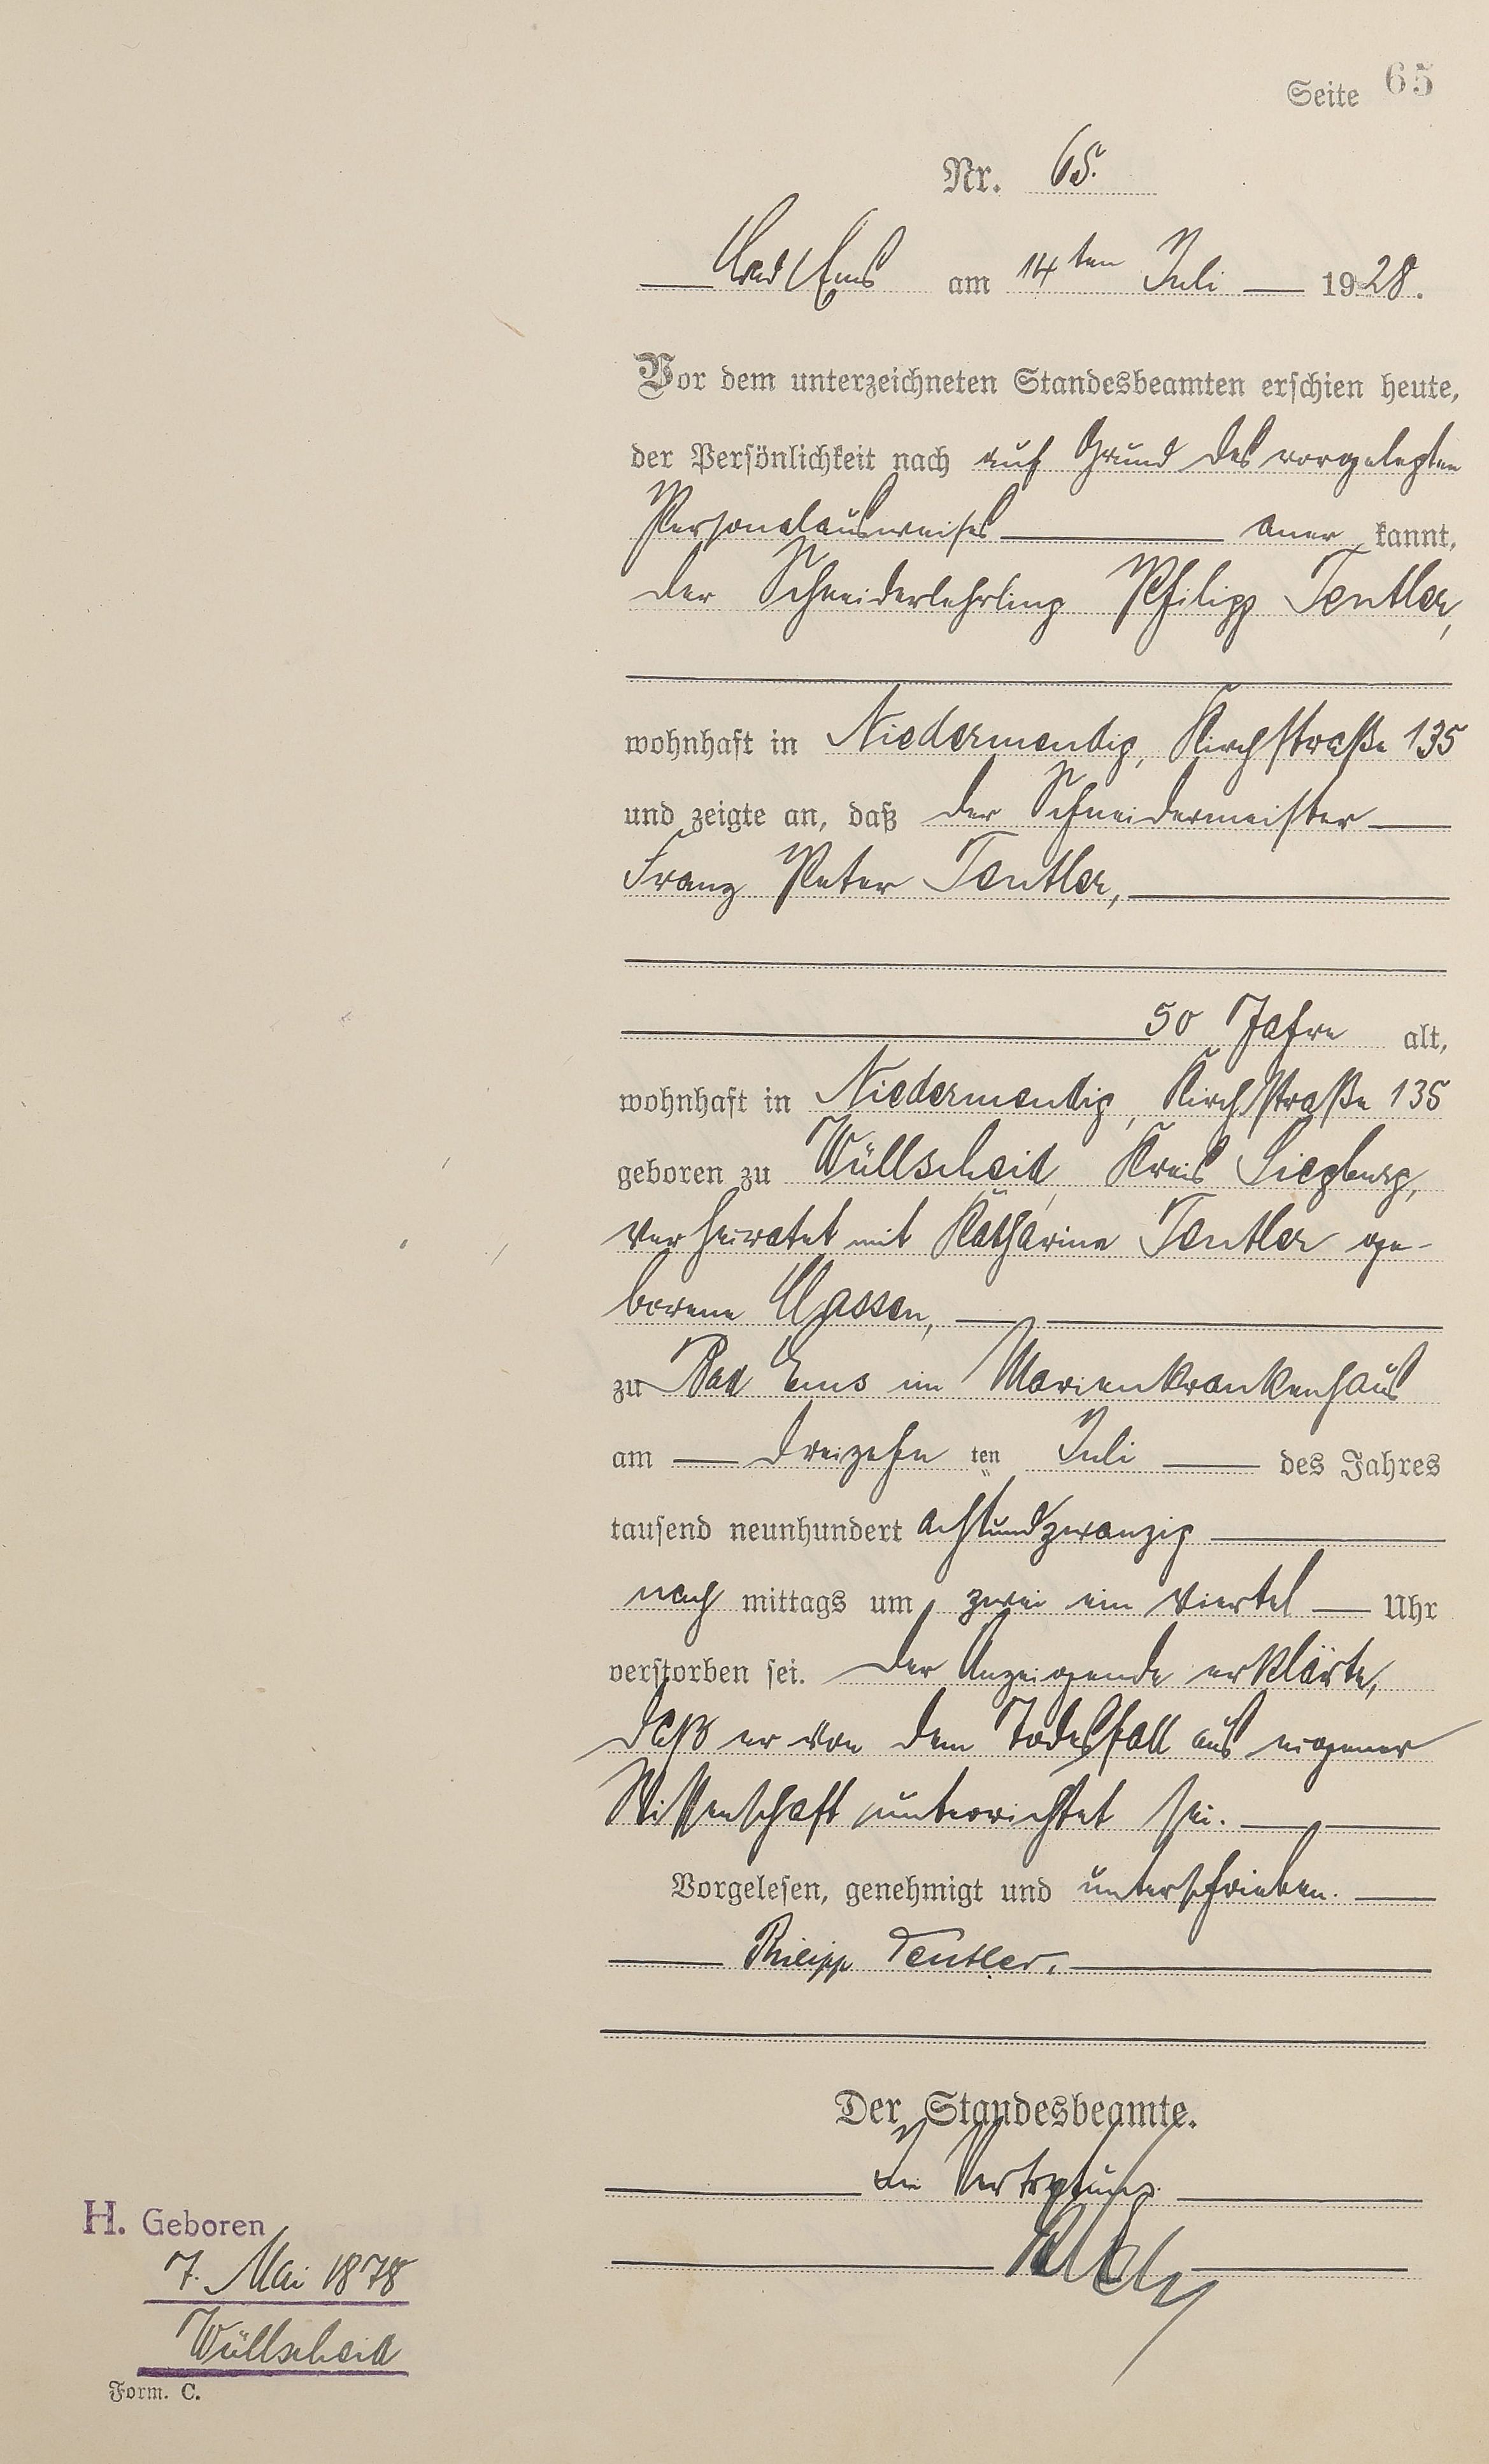 Seite 65
Nr. 65.
Bad Ems am 14ten Juli 1928.
Vor dem unterzeichneten Standesbeamten erschien heute,
der Persönlichkeit nach auf Grund des vorgelegten
Personalausweises aner kannt,
der Schneiderlehrling Philipp Tentler,
wohnhaft in Niedermendig, Kirchstraße 135
und zeigte an, daß der Schneidermeister
Franz Peter Tentler,
50 Jahre alt,
wohnhaft in Niedermendig, Kirchstraße 135
geboren zu Wüllscheid, Kreis Siegburg,
verheiratet mit Katharina Tentler ge-
borene Classen,
zu Bad Ems im Marienkrankenhaus
am dreizehn ten Juli des Jahres
tausend neunhundert achtundzwanzig
nach mittags um zwei ein viertel Uhr
verstorben sei. Der Anzeigende erklärte,
daß er von dem Todesfall aus eigener
Wissenschaft unterrichtet sei.
Vorgelesen, genehmigt und unterschrieben.
Philipp Tentler.
Der Standesbeamte.
In Vertretung
H. Geboren
7. Mai 1878
Wüllscheid
Form. C.